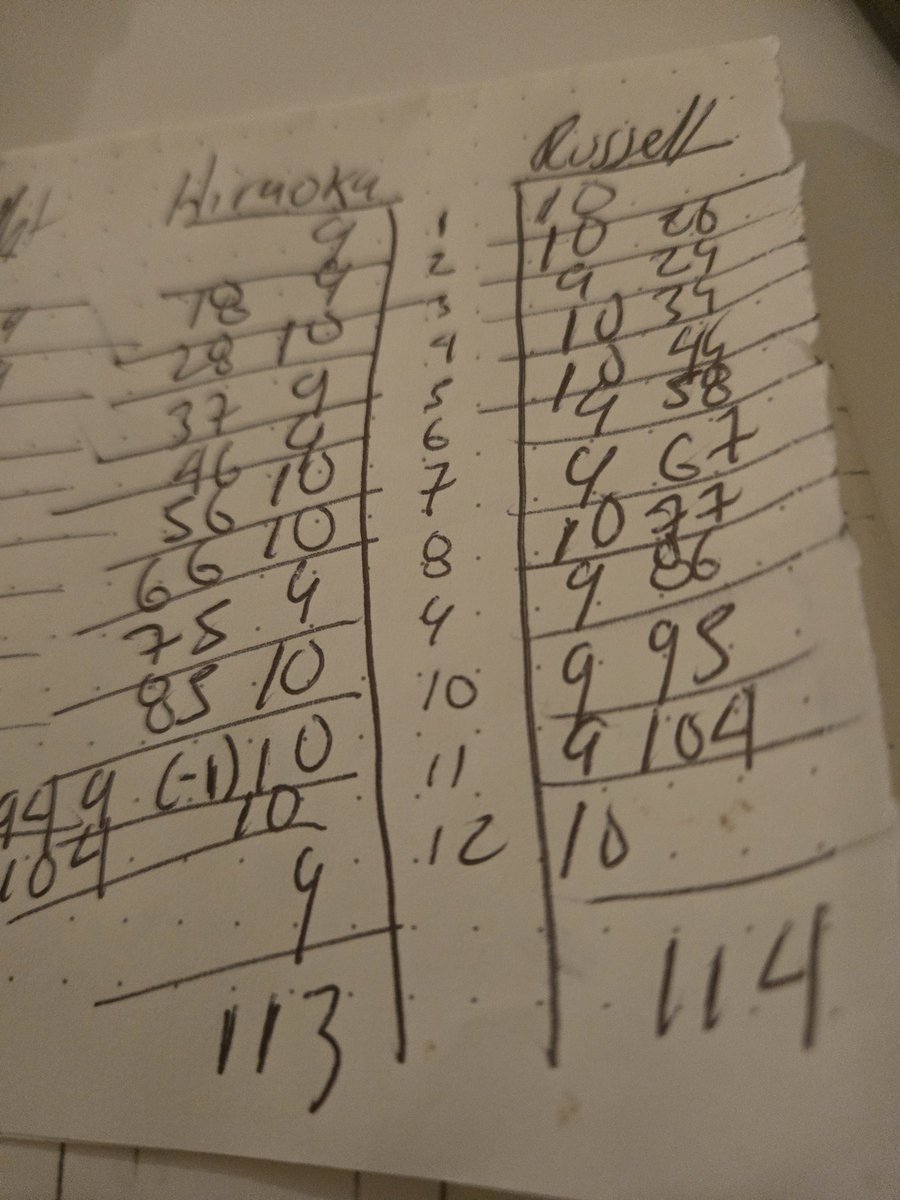 Hiraoka Russell
9 1 10
18 9 2 10 20
28 10 3 9 29
37 9 4 10 39
46 9 5 10 49
56 10 6 9 58
66 10 7 9 67
75 9 8 10 77
85 10 9 9 86
94 9 (-1) 10 10 9 95
104 10 11 9 104
9 12 10
113 114